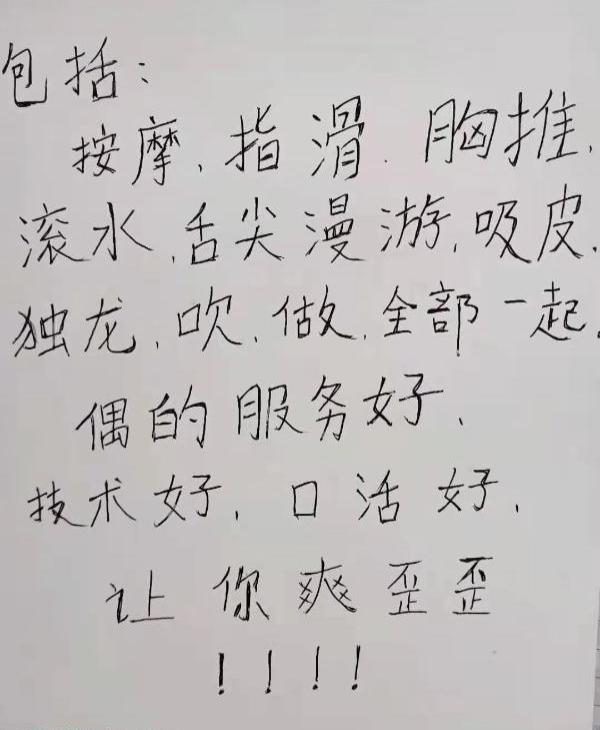 包括:
按摩,指滑.胸推,
滚水,舌尖漫游,吸皮,
独龙,吹,做,全部一起,
偶的服务好,
技术好,口活好,
让你爽歪歪
!!!!